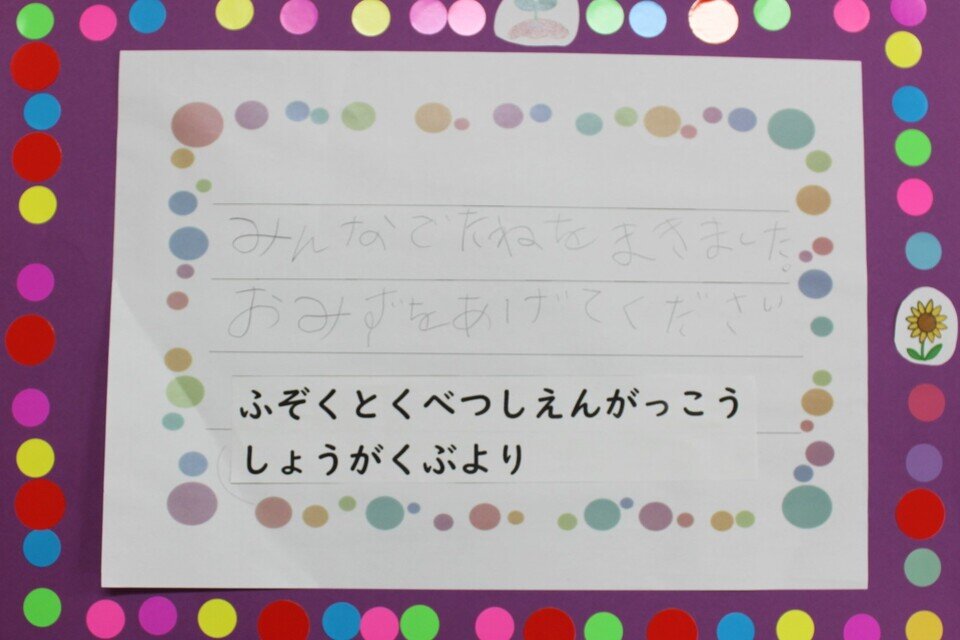 みんなでたねをまきました。
おみずをあげてください
ふぞくとくべつしえんがっこう
しょうがくぶより